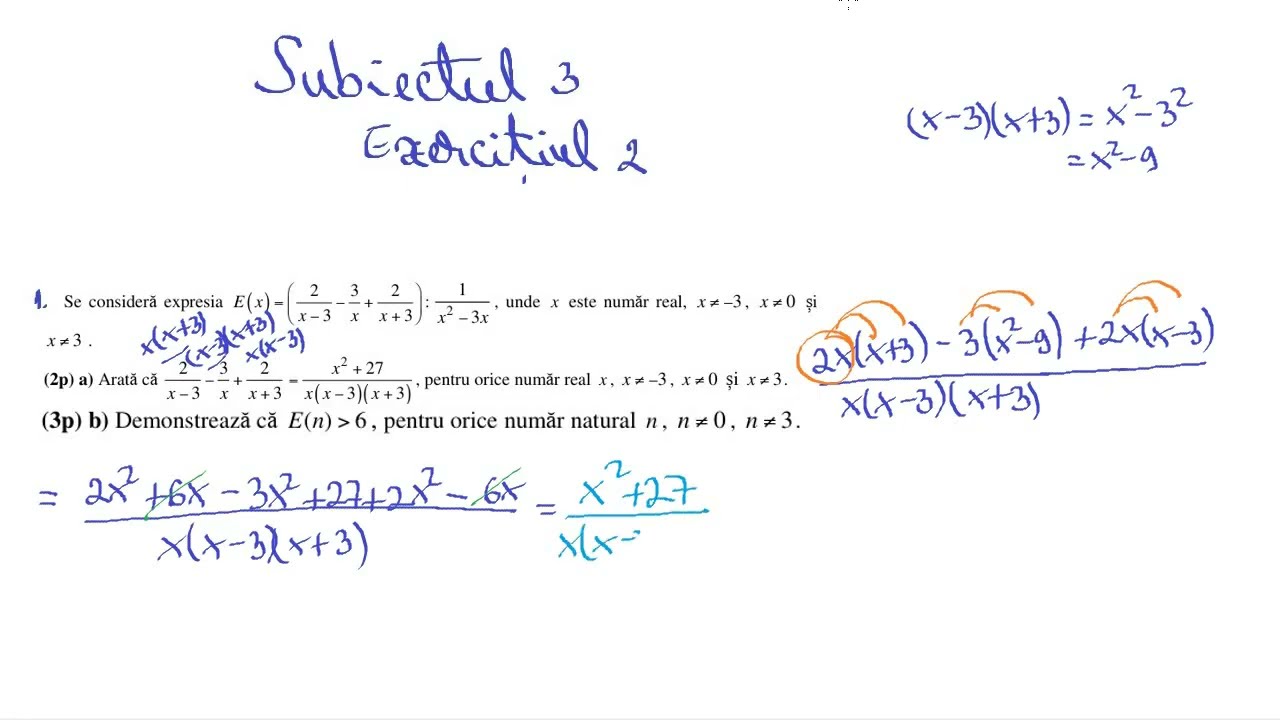 Subiectul 3
Exercițiul 2
(x-3)(x+3) = x² - 3²
= x² - 9
1. Se consideră expresia E(x) = (2/(x-3) - 3/x + 2/(x+3)) : 1/(x² - 3x), unde x este număr real, x ≠ -3, x ≠ 0 și
x ≠ 3.
x(x+3) (x-3)(x+3) x(x-3)
(2p) a) Arată că 2/(x-3) - 3/x + 2/(x+3) = (x² + 27)/(x(x-3)(x+3)), pentru orice număr real x, x ≠ -3, x ≠ 0 și x ≠ 3.
(3p) b) Demonstrează că E(n) > 6, pentru orice număr natural n, n ≠ 0, n ≠ 3.
2x(x+3) - 3(x²-9) + 2x(x-3)
x(x-3)(x+3)
= 2x² + 6x - 3x² + 27 + 2x² - 6x = x² + 27
x(x-3)(x+3) x(x-